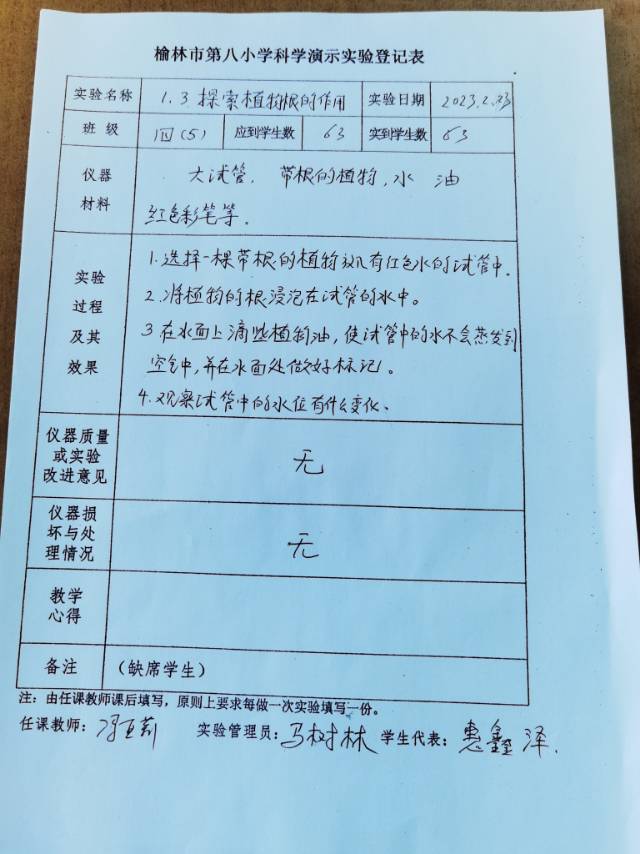 榆林市第八小学科学演示实验登记表
实验名称 1.3 探索植物根的作用 实验日期 2023.2.23
班 级 四(5) 应到学生数 63 实到学生数 63
仪器 大试管. 带根的植物,水 油
材料 红色彩笔等.
1.选择一棵带根的植物放入有红色水的试管中.
实验 2.将植物的根浸泡在试管的水中。
过程 3 在水面上滴些植物油,使试管中的水不会蒸发到
及其 空气中,并在水面处做好标记。
效果 4.观察试管中的水位有什么变化、
仪器质量
或实验 无
改进意见
仪器损
坏与处 无
理情况
教学
心得
备注 (缺席学生)
注:由任课教师课后填写,原则上要求每做一次实验填写一份。
任课教师: 实验管理员:马树林 学生代表:惠鑫泽.